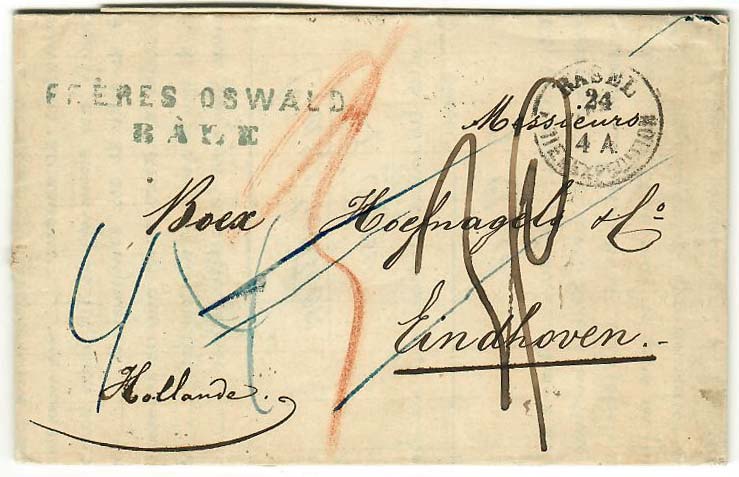 FRÈRES OSWALD
BÂLE
BASEL
24
4 A.
BRIEFEXPEDITION
Messieurs
Boex Hoefnagels & Co
Eindhoven.
Hollande.
4